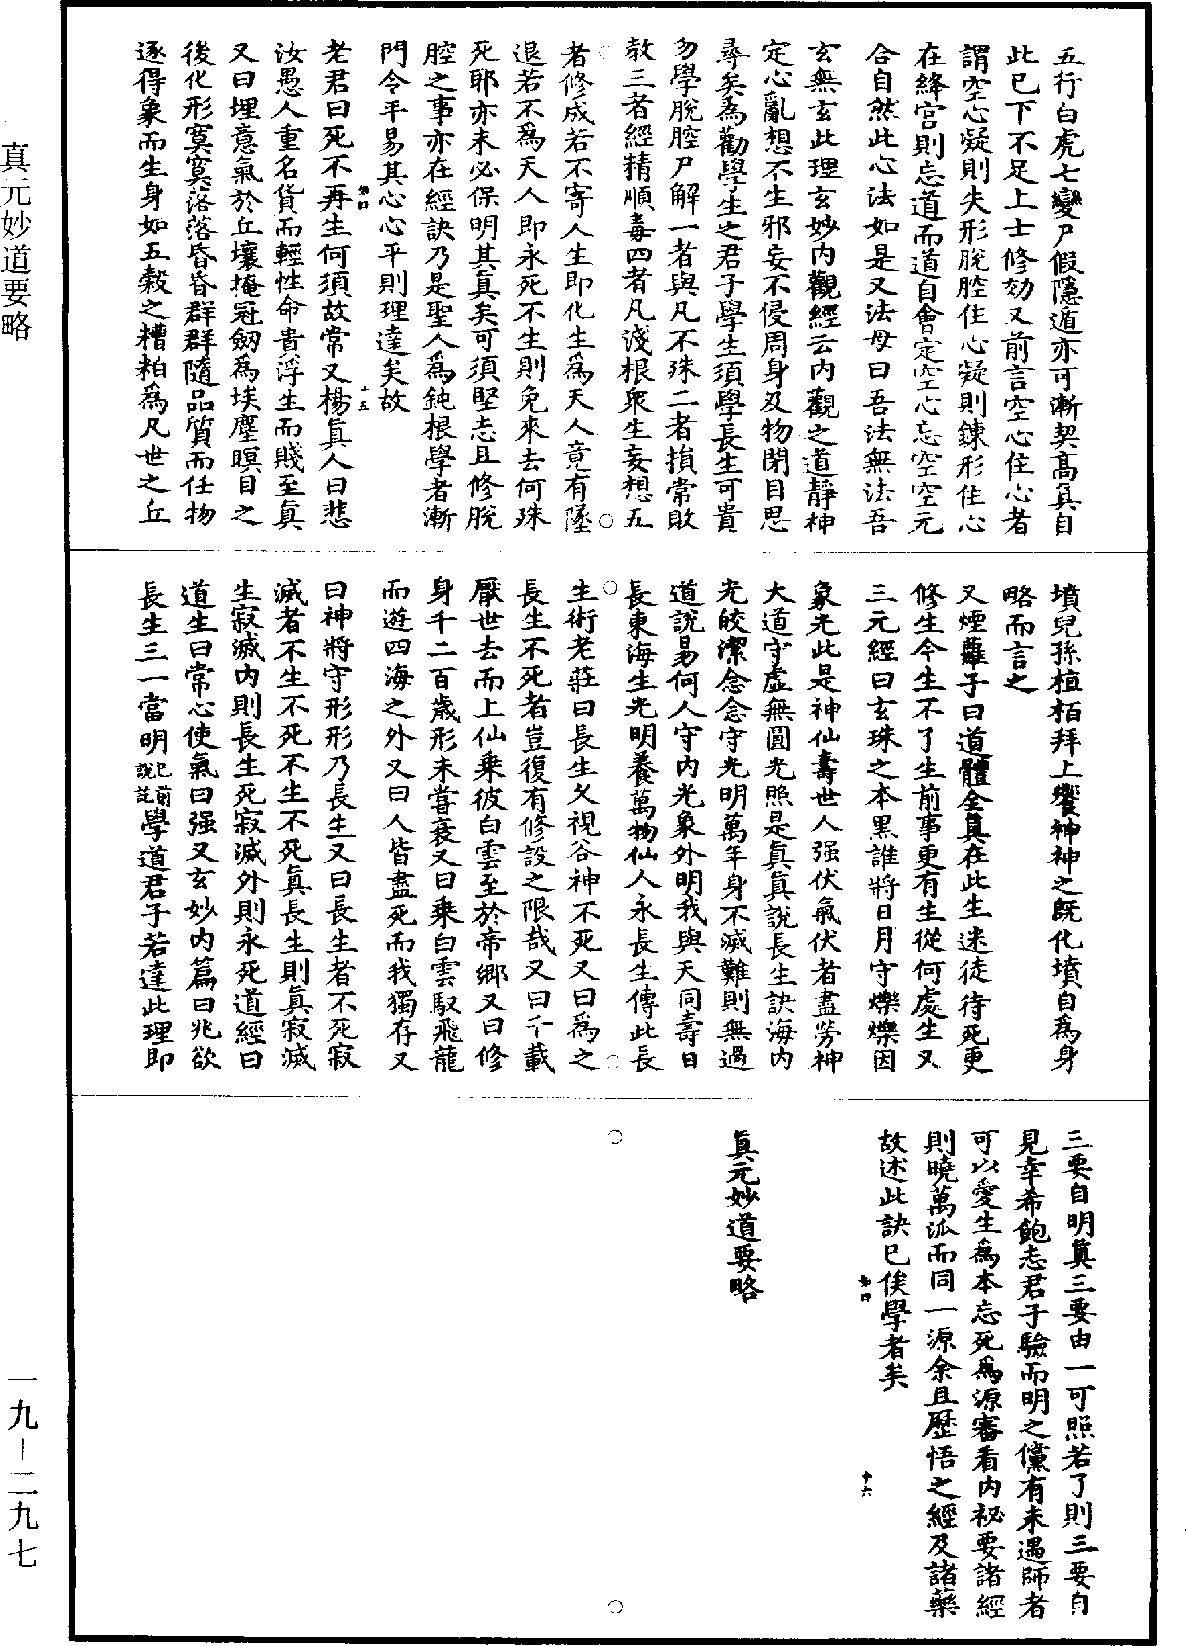 五行白虎七變尸假隱遁亦可漸契高真自
此已下不足上士修劾又前言空心住心者
謂空心凝則失形脫腔住心凝則鍊形住心
在絳宮則忘道而道自會定空心忘空空元
合自然此心法如是又法母曰吾法無法吾
玄無玄此理玄妙內觀經云內觀之道靜神
定心亂想不生邪妄不侵周身及物閉目思
尋矣為勸學生之君子學生須學長生可貴
勿學脫腔尸解一者與凡不殊二者損常敗
教三者經精順毒四者凡淺根眾生妄想五
者修成若不寄人生即化生為天人竟有墜
退若不為天人即永死不生則免來去何殊
死耶亦未必保明其真矣可須堅志且修脫
腔之事亦在經訣乃是聖人為鈍根學者漸
門令平易其心心平則理達矣故
第四 十五
老君曰死不再生何須故常又楊真人曰悲
汝愚人重名貨而輕性命貴浮生而賤至真
又曰埋意氣於丘壤掩冠劒為埃塵瞑目之
後化形寞寞落落昏昏群群隨品質而任物
逐得象而生身如五穀之糟粕為凡世之丘
墳兒孫植栢拜上饗神神之既化墳自為身
略而言之
又煙蘿子曰道體全真在此生迷徒待死更
修生今生不了生前事更有生從何處生又
三元經曰玄珠之本黑誰將日月守爍爍因
象光此是神仙壽世人强伏氣伏者盡勞神
大道守虛無圓光照是真真說長生訣海內
光皎潔念念守光明萬年身不滅難則無過
道說易何人守內光象外明我與天同壽日
長東海生光明養萬物仙人永長生傳此長
生術老莊曰長生久視谷神不死又曰為之
長生不死者豈復有修設之限哉又曰千載
厭世去而上仙乘彼白雲至於帝鄉又曰修
身千二百歲形未嘗衰又曰乘白雲馭飛龍
而遊四海之外又曰人皆盡死而我獨存又
曰神將守形形乃長生又曰長生者不死寂
滅者不生不死不生不死真長生則真寂滅
生寂滅內則長生死寂滅外則永死道經曰
道生曰常心使氣曰强又玄妙內篇曰兆欲
長生三一當明已前說訖學道君子若達此理即
三要自明真三要由一可照若了則三要自
見幸希鉋志君子驗而明之儻有未遇師者
可以愛生為本忘死為源審看內祕要諸經
則曉萬派而同一源余且歷悟之經及諸藥
故述此訣已俟學者矣
第四 十六
真元妙道要略
真元妙道要略
一九-二九七